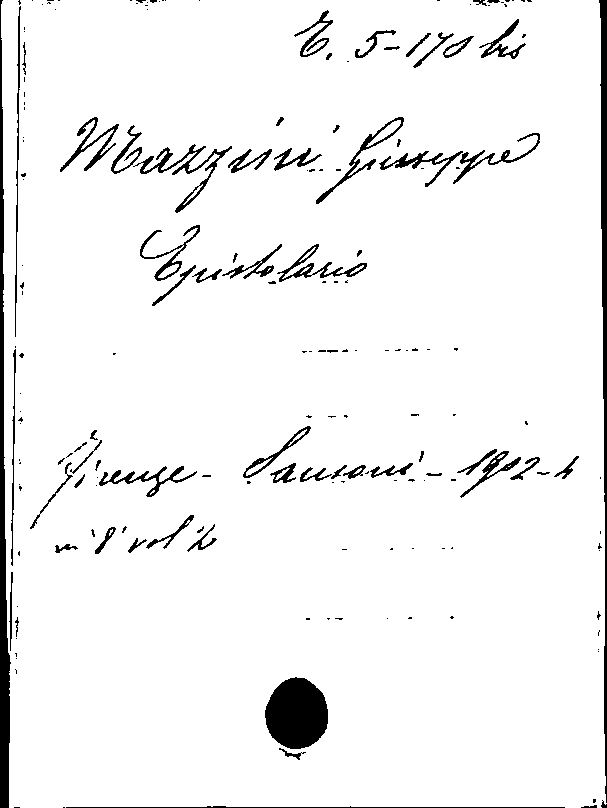 E. 5-170 bis
Mazzini Giuseppe
Epistolario
Firenze - Sansoni - 1902-4
in 8° vol 2